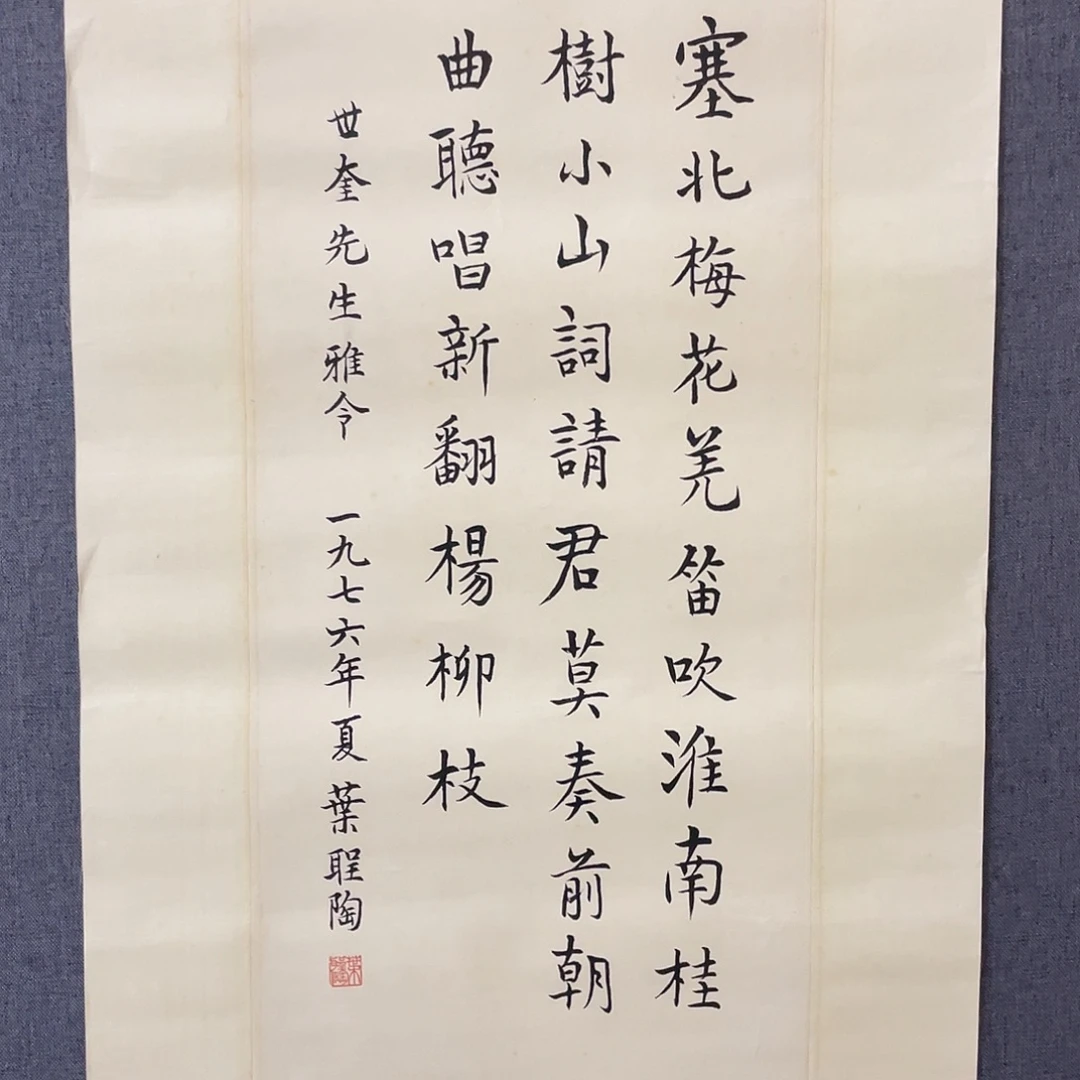 塞北梅花羌笛吹淮南桂
樹小山詞請君莫奏前朝
曲聽唱新翻楊柳枝
世奎先生雅令 一九七六年夏 葉聖陶